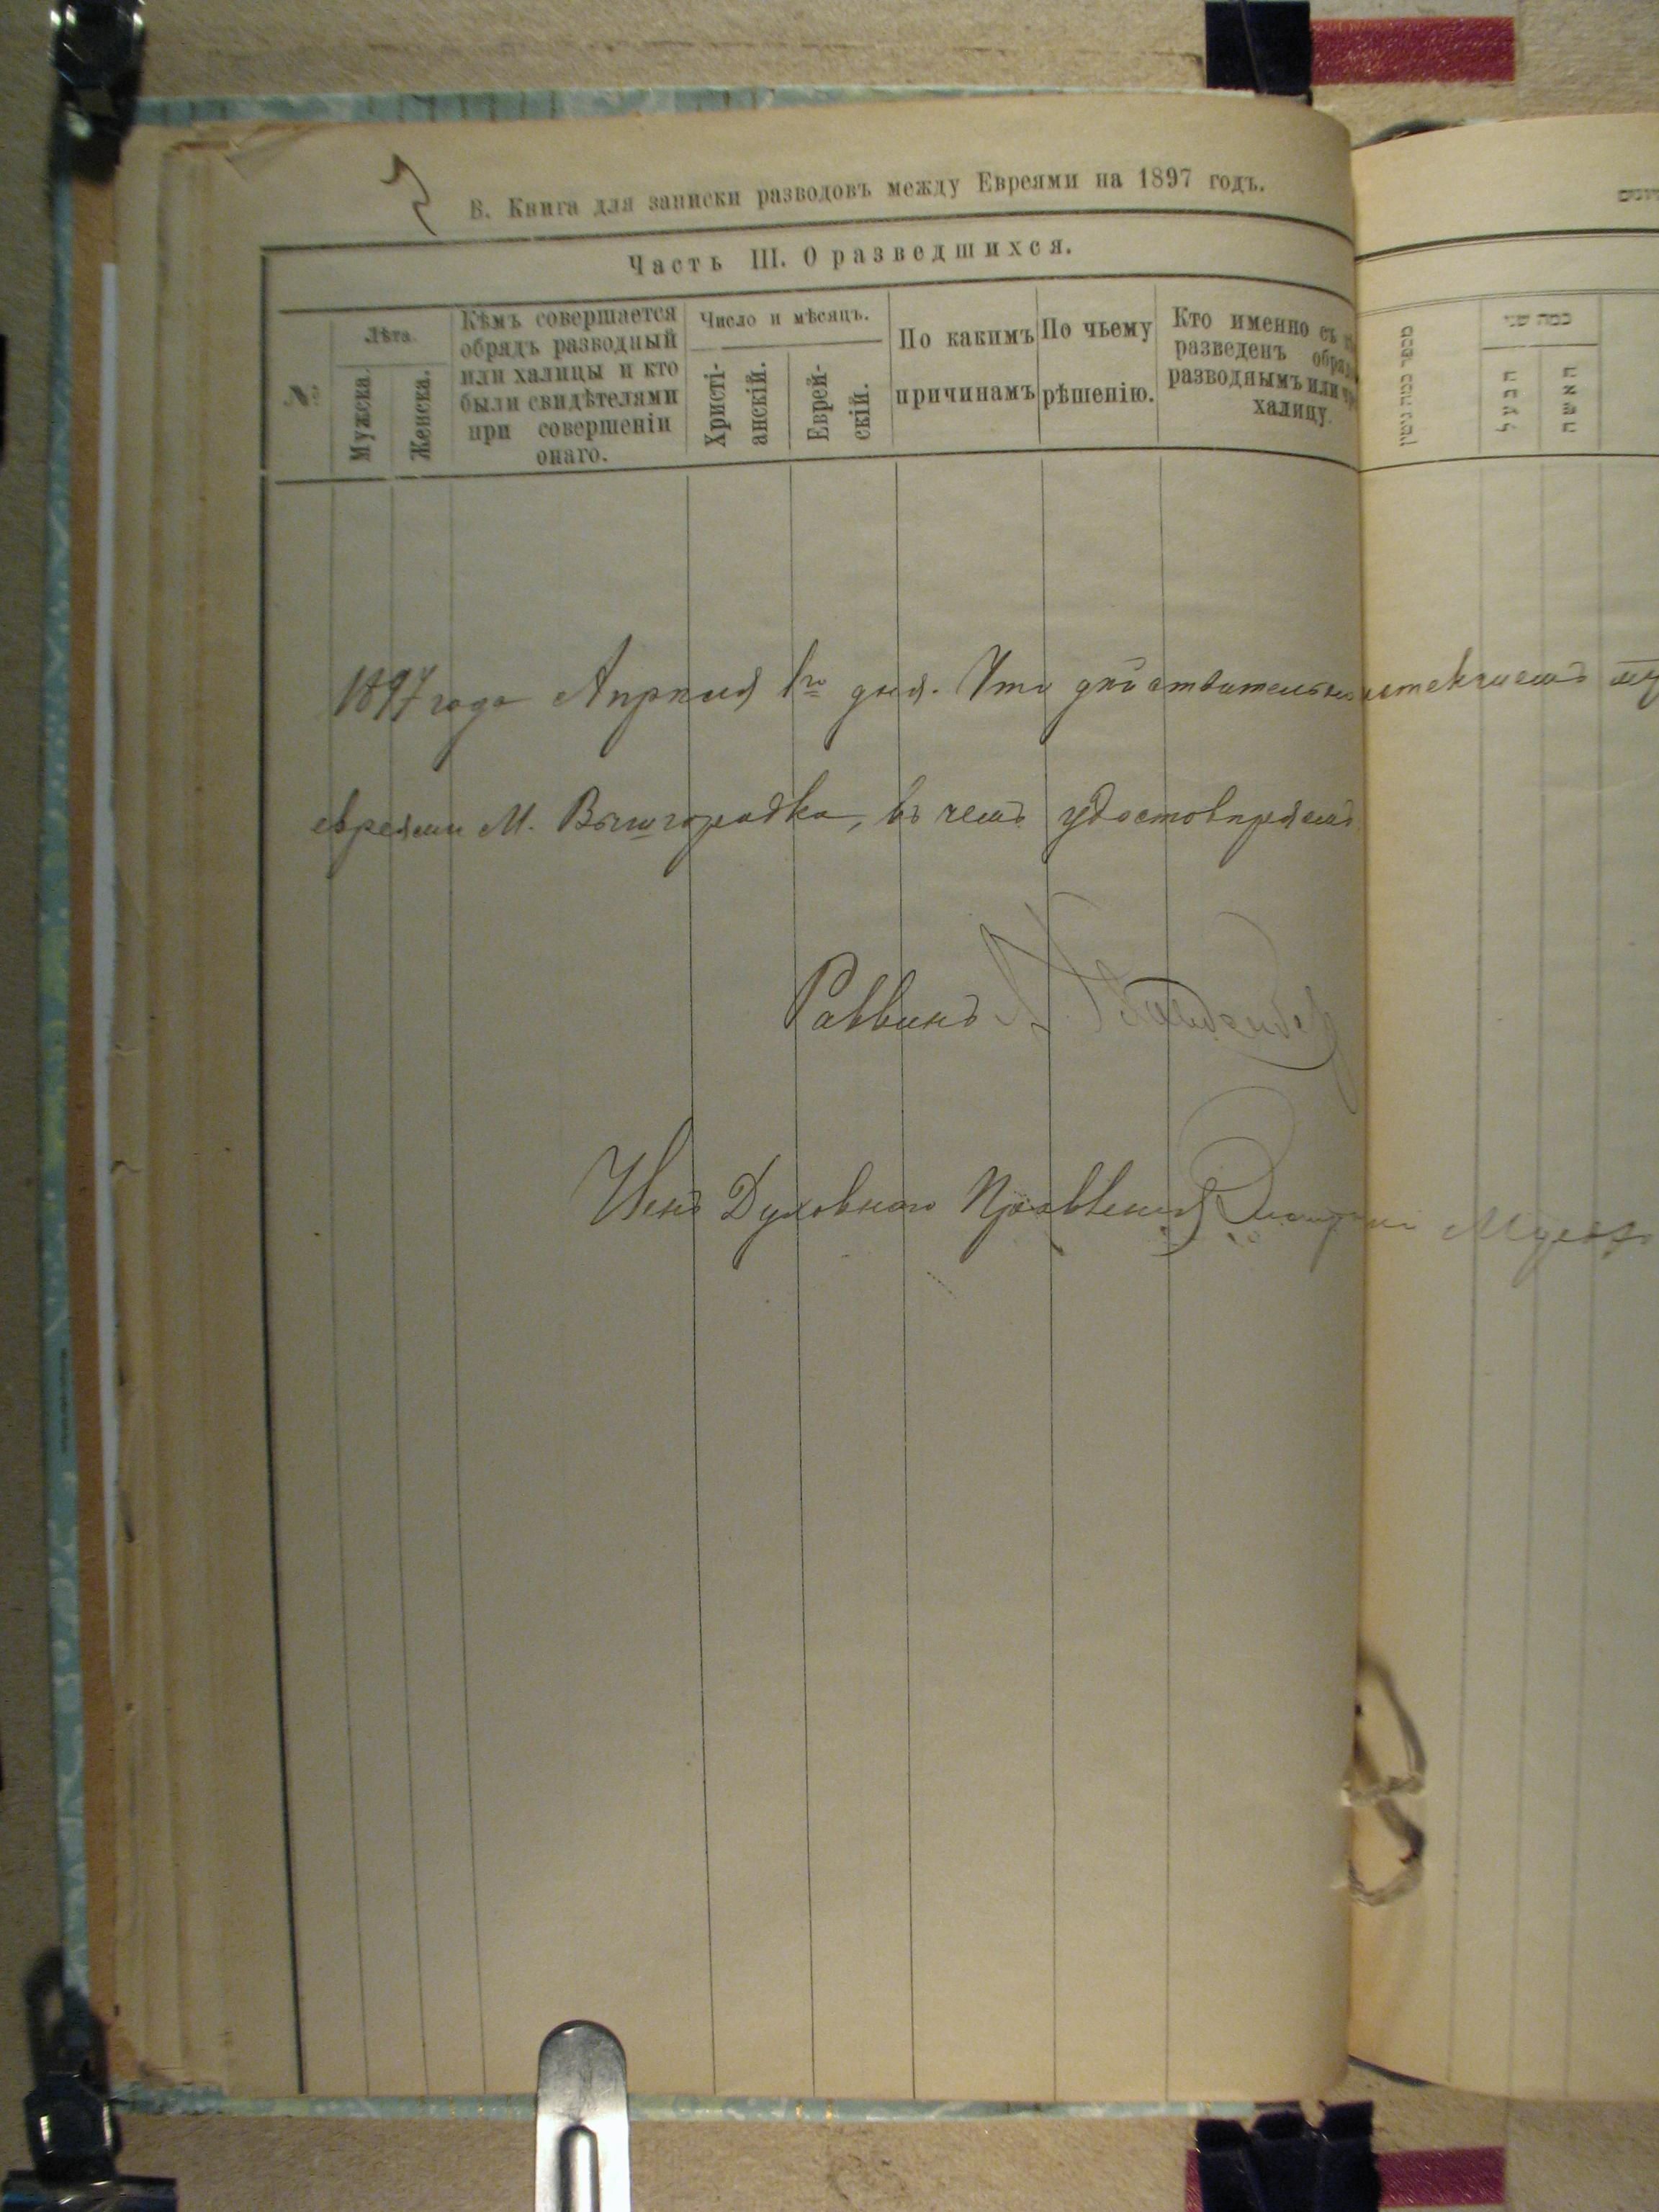 В. Книга для записки разводовъ между Евреями на 1897 годъ.
Часть III. О разведшихся.
№
Лѣта.
Мужска.
Женска.
Кѣмъ совершается
обрядъ разводный
или халицы и кто
были свидѣтелями
при совершеніи
онаго.
Число и мѣсяцъ.
Христі-
анскій.
Еврей-
скій.
По какимъ
причинамъ
По чьему
рѣшенію.
Кто именно съ
разведенъ
разводнымъ или
халицу.
כמה שני
הבעל
האשה
1897 года Апрѣля 1го дня. Что дѣйствительно
евреями М. Вышгородка, въ чемъ удостовѣряемъ
Раввинъ
Членъ Духовнаго Правленія